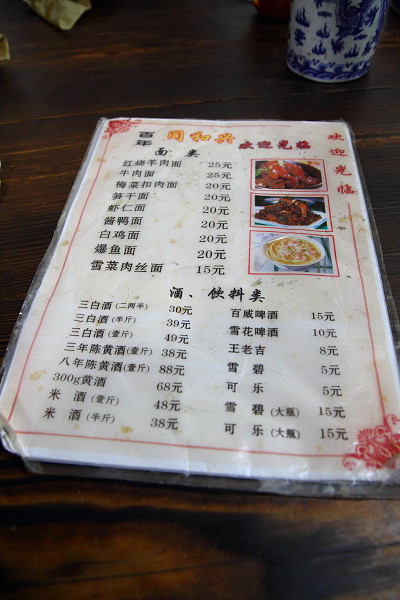 百年 同和兴 欢迎光临
欢迎光临
面 类
红烧羊肉面 25元
牛肉面 25元
梅菜扣肉面 20元
笋干面 20元
虾仁面 20元
酱鸭面 20元
白鸡面 20元
爆鱼面 20元
雪菜肉丝面 15元
酒、饮料类
三白酒(二两半) 30元
三白酒(半斤) 39元
三白酒(壹斤) 49元
三年陈黄酒(壹斤) 38元
八年陈黄酒(壹斤) 88元
300g黄酒 68元
米 酒(壹斤) 48元
米 酒(半斤) 38元
百威啤酒 15元
雪花啤酒 10元
王老吉 8元
雪 碧 5元
可 乐 5元
雪 碧(大瓶) 15元
可 乐(大瓶) 15元